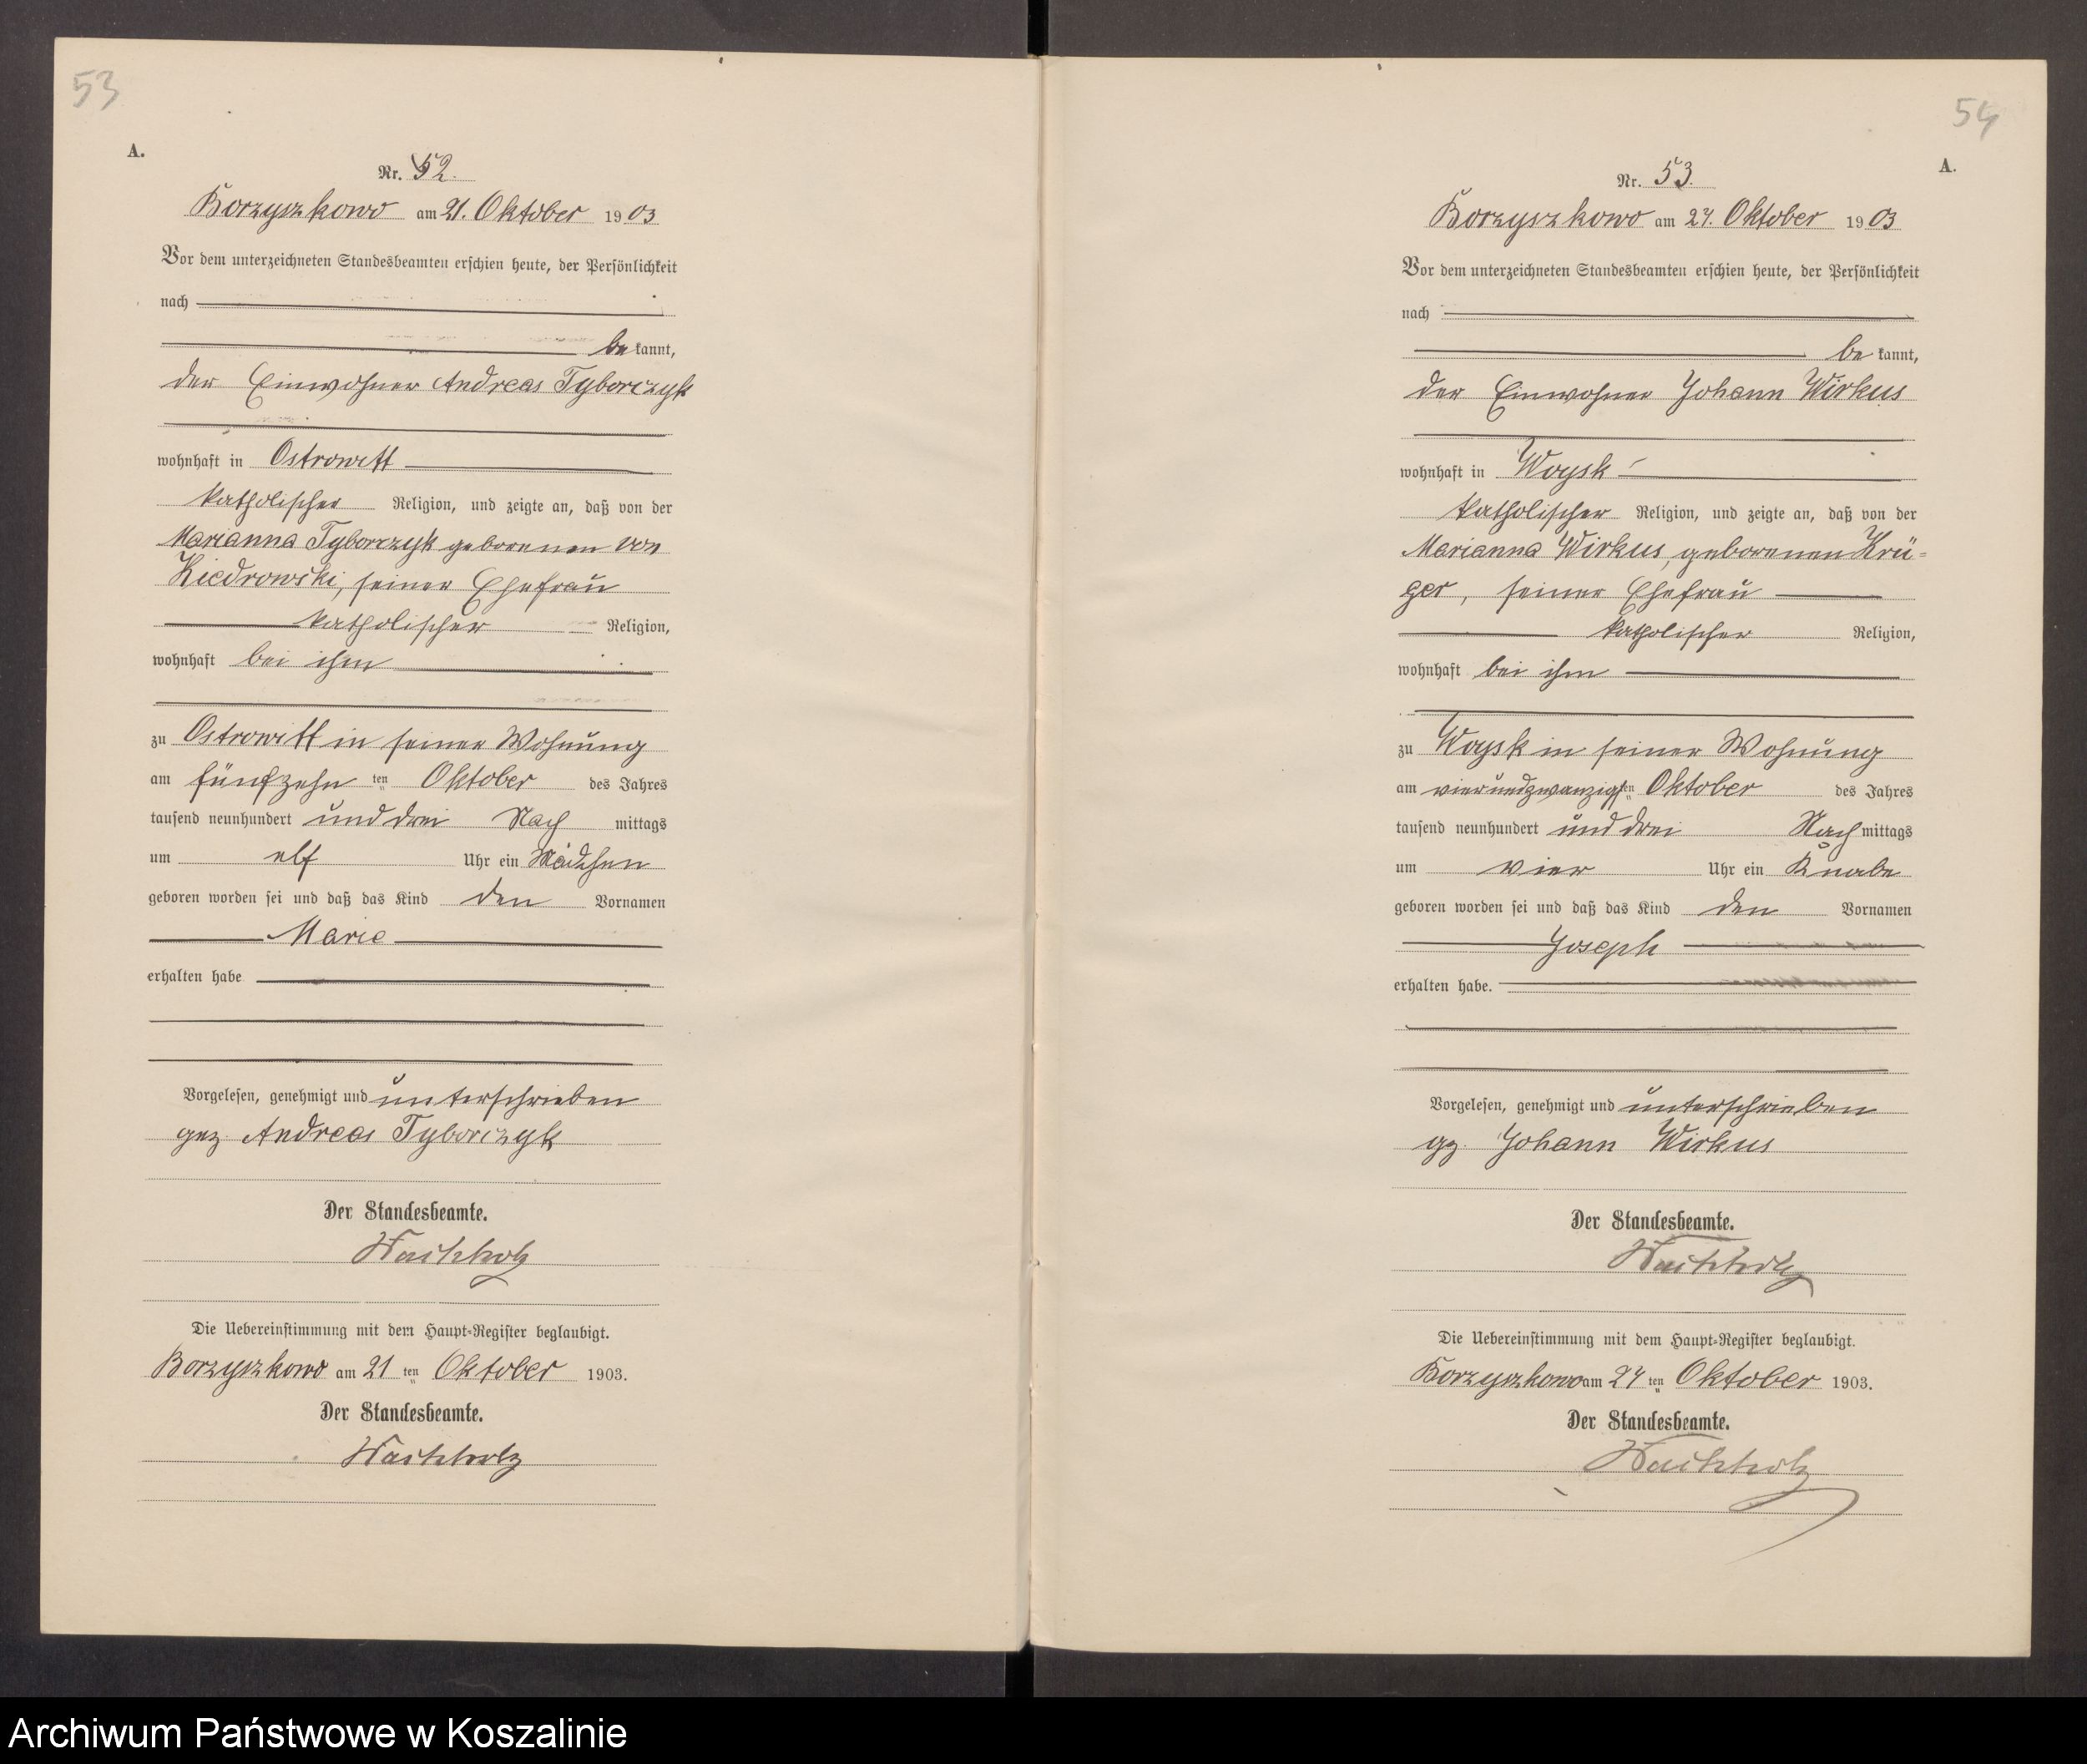 53
A.
Nr. 52.
Borzyszkowo am 21. Oktober 1903
Vor dem unterzeichneten Standesbeamten erschien heute, der Persönlichkeit
nach
be kannt,
der Einwohner Andreas Tyborczyk
wohnhaft in Ostrowitt
katholischer Religion, und zeigte an, daß von der
Marianna Tyborczyk geborenen von
Kiedrowski, seiner Ehefrau
katholischer Religion,
wohnhaft bei ihm
zu Ostrowitt in seiner Wohnung
am fünfzehn ten Oktober des Jahres
tausend neunhundert und drei Nach mittags
um elf Uhr ein Mädchen
geboren worden sei und daß das Kind den Vornamen
Marie
erhalten habe
Vorgelesen, genehmigt und unterschrieben
gez. Andreas Tyborczyk
Der Standesbeamte.
Wachholz
Die Uebereinstimmung mit dem Haupt-Register beglaubigt.
Borzyszkowo am 21 ten Oktober 1903.
Der Standesbeamte.
Wachholz
54
A.
Nr. 53.
Borzyszkowo am 27. Oktober 1903
Vor dem unterzeichneten Standesbeamten erschien heute, der Persönlichkeit
nach
be kannt,
der Einwohner Johann Wirkus
wohnhaft in Woysk
katholischer Religion, und zeigte an, daß von der
Marianna Wirkus, geborenen Krü-
ger, seiner Ehefrau
katholischer Religion,
wohnhaft bei ihm
zu Woysk in seiner Wohnung
am vierundzwanzigsten Oktober des Jahres
tausend neunhundert und drei Nach mittags
um vier Uhr ein Knabe
geboren worden sei und daß das Kind den Vornamen
Joseph
erhalten habe.
Vorgelesen, genehmigt und unterschrieben
gz. Johann Wirkus
Der Standesbeamte.
Wachholz
Die Uebereinstimmung mit dem Haupt-Register beglaubigt.
Borzyszkowo am 27 ten Oktober 1903.
Der Standesbeamte.
Wachholz
Archiwum Państwowe w Koszalinie